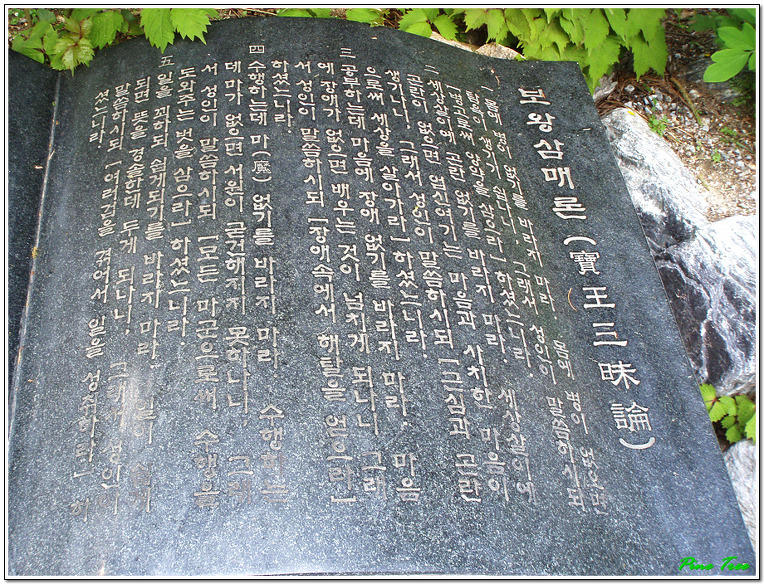 보왕삼매론(寶王三昧論)
一 몸에 병이 없기를 바라지 마라. 몸에 병이 없으면
탐욕이 생기기 쉽나니, 그래서 성인이 말씀하시되
「병고로써 양약을 삼으라」 하셨느니라.
二 세상살이에 곤란 없기를 바라지 마라. 세상살이에
곤란이 없으면 업신여기는 마음과 사치한 마음이
생기나니, 그래서 성인이 말씀하시되 「근심과 곤란
으로써 세상을 살아가라」 하셨느니라.
三 공부하는데 마음에 장애 없기를 바라지 마라. 마음
에 장애가 없으면 배우는 것이 넘치게 되나니, 그래
서 성인이 말씀하시되 「장애속에서 해탈을 얻으라」
하셨느니라.
四 수행하는데 마(魔) 없기를 바라지 마라. 수행하는
데 마가 없으면 서원이 굳건해지지 못하나니, 그래
서 성인이 말씀하시되 「모든 마군으로써 수행을
도와주는 벗을 삼으라」 하셨느니라.
五 일을 꾀하되 쉽게 되기를 바라지 마라. 일이 쉽게
되면 뜻을 경솔한데 두게 되나니, 그래서 성인이
말씀하시되 「여러겁을 겪어서 일을 성취하라」 하
셨느니라.
Pine Tree